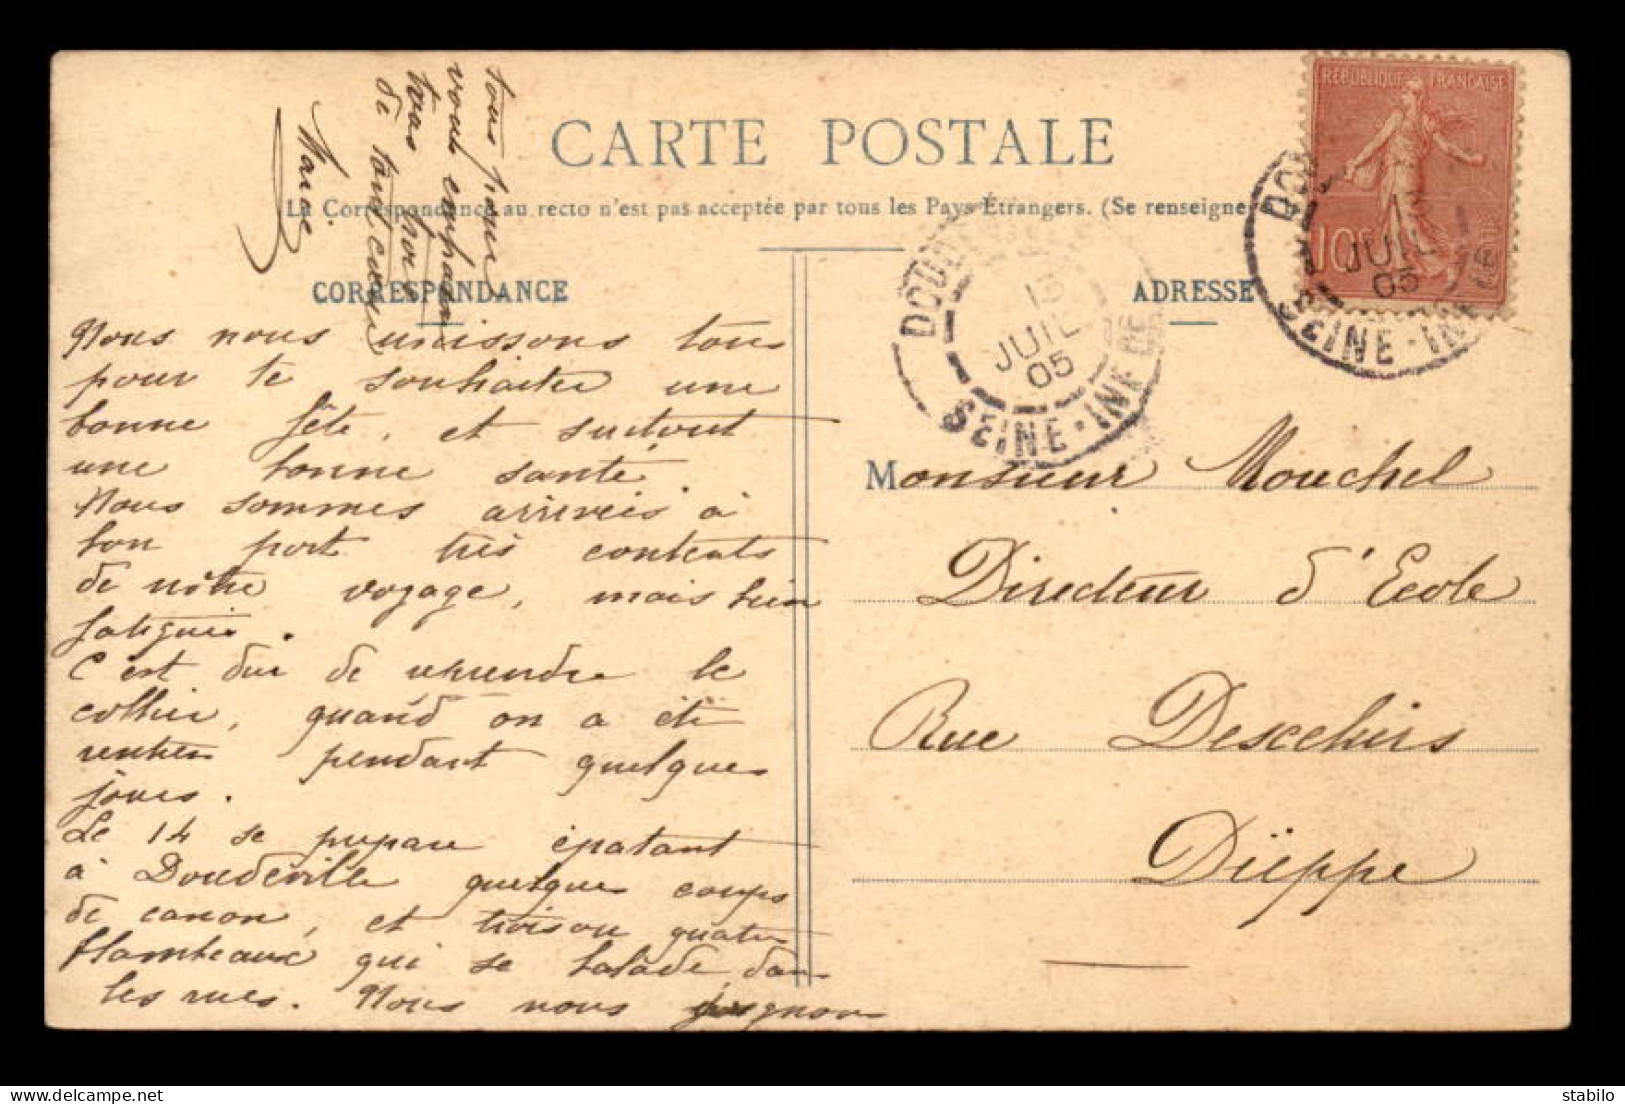 CARTE POSTALE
La Correspondance au recto n'est pas acceptée par tous les Pays Étrangers. (Se renseigne
CORRESPONDANCE
Nous nous unissons tous
pour te souhaiter une
bonne fête, et surtout
une bonne santé.
Nous sommes arrivés à
bon port très contents
de nôtre voyage, mais bien
fatigués.
C'est dur de reprendre le
collier, quand on a été
rentier pendant quelques
jours.
Le 14 se prépare épatant
à Doudeville quelques coups
de canon, et trois ou quatre
flambeaux qui se balade dans
les rues. Nous nous joignons
tous pour
vous embrasser
tous
de tout coeur
Marie
ADRESSE
Monsieur Mouchel
Directeur d'Ecole
Rue Desceliers
Dieppe
RÉPUBLIQUE FRANÇAISE
10c
13
JUIL
05
SEINE-INFRE
13
JUIL
05
SEINE-INF
delcampe.net
stabilo